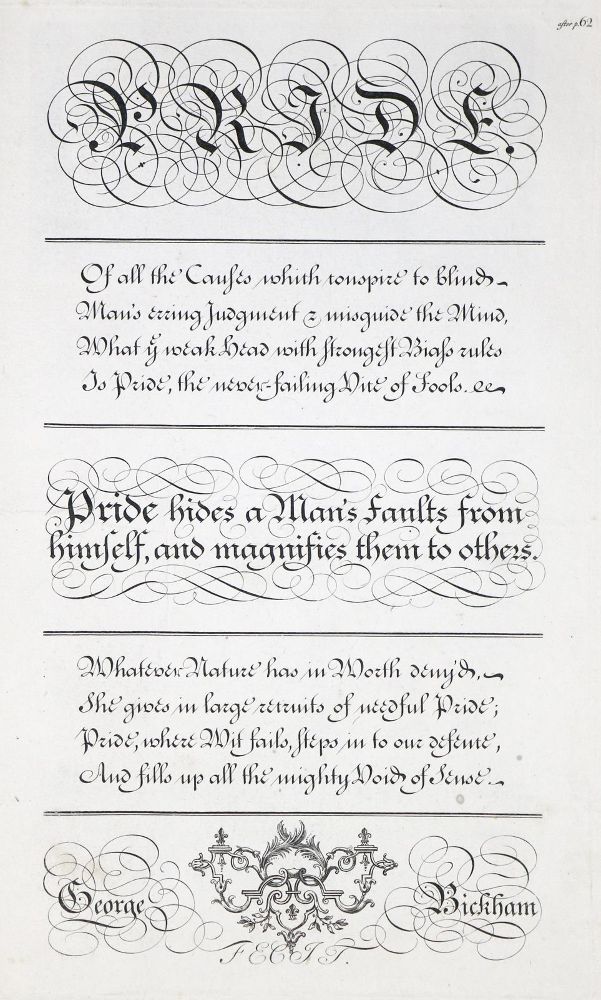 after p. 62
PRIDE.
Of all the Causes which conspire to blind
Man's erring Judgment & misguide the Mind,
What yͤ weak Head with strongest Biass rules
Is Pride, the never-failing Vice of Fools. &c
Pride hides a Man's Faults from
himself, and magnifies them to others.
Whatever Nature has in Worth deny'd,
She gives in large recruits of needful Pride;
Pride, where Wit fails, steps in to our defence,
And fills up all the mighty Void of Sense.
George Bickham
FECIT.